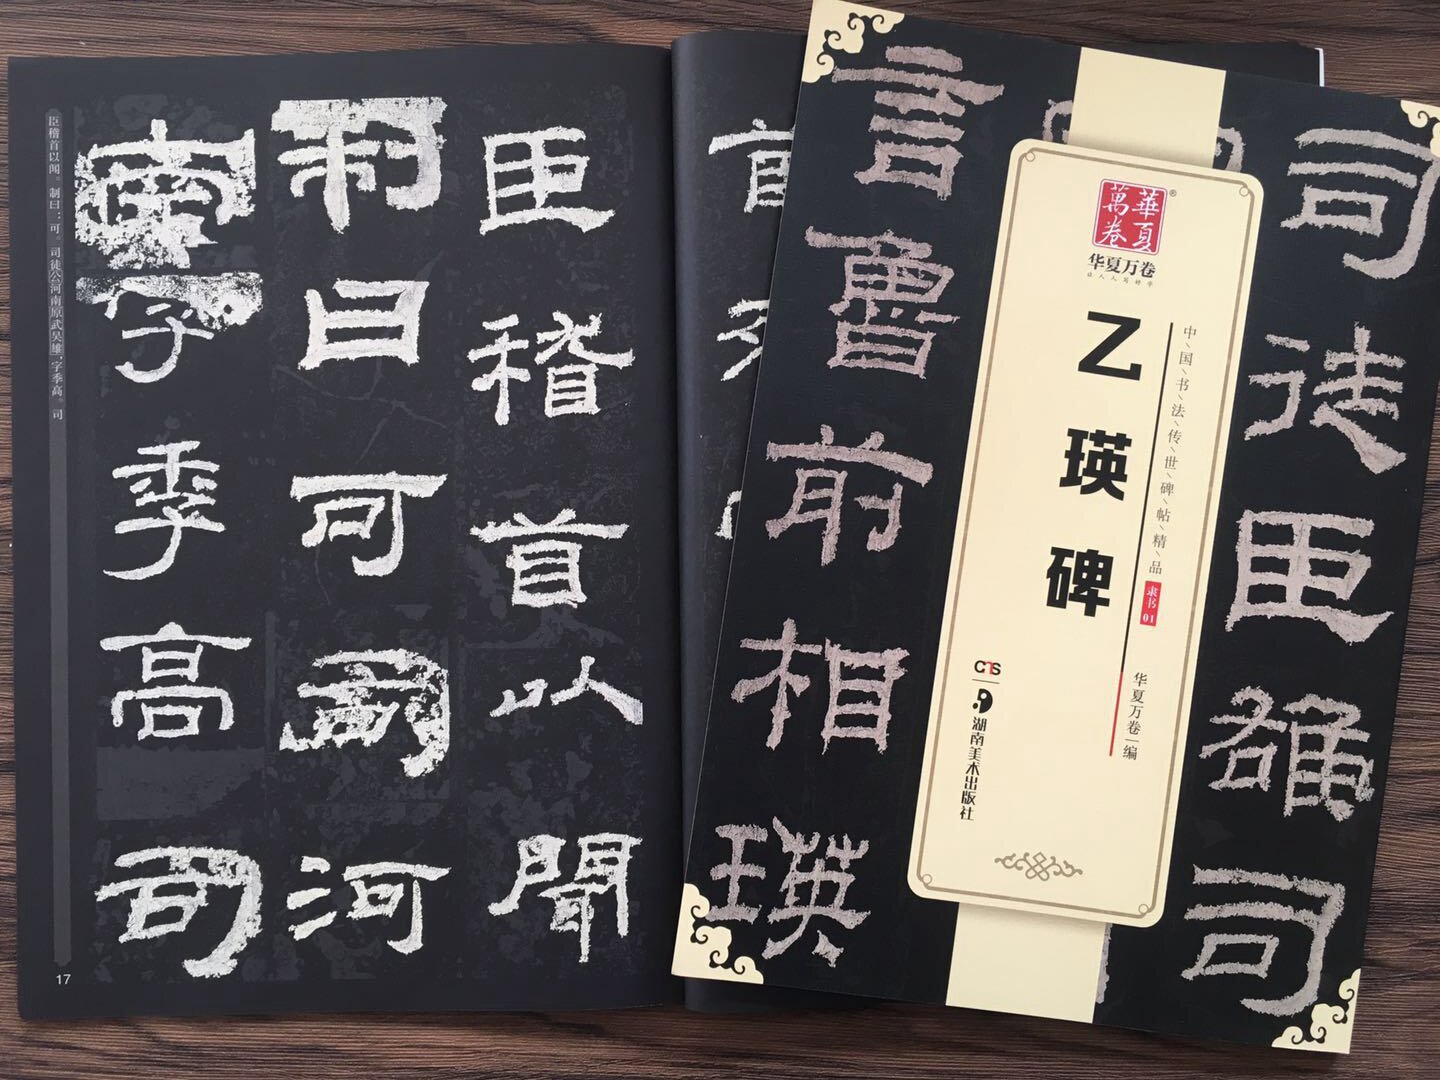 臣稽首以聞
制曰可司河
字季高司
臣稽首以闻 制曰：可。司徒公河南原武吴雄，字季高。司
17
司徒臣雄司
言魯前相瑛
萬卷華夏
®
华夏万卷
让人人写好字
中\国\书\法\传\世\碑\帖\精\品
隶书01
乙瑛碑
华夏万卷|编
CTS
湖南美术出版社